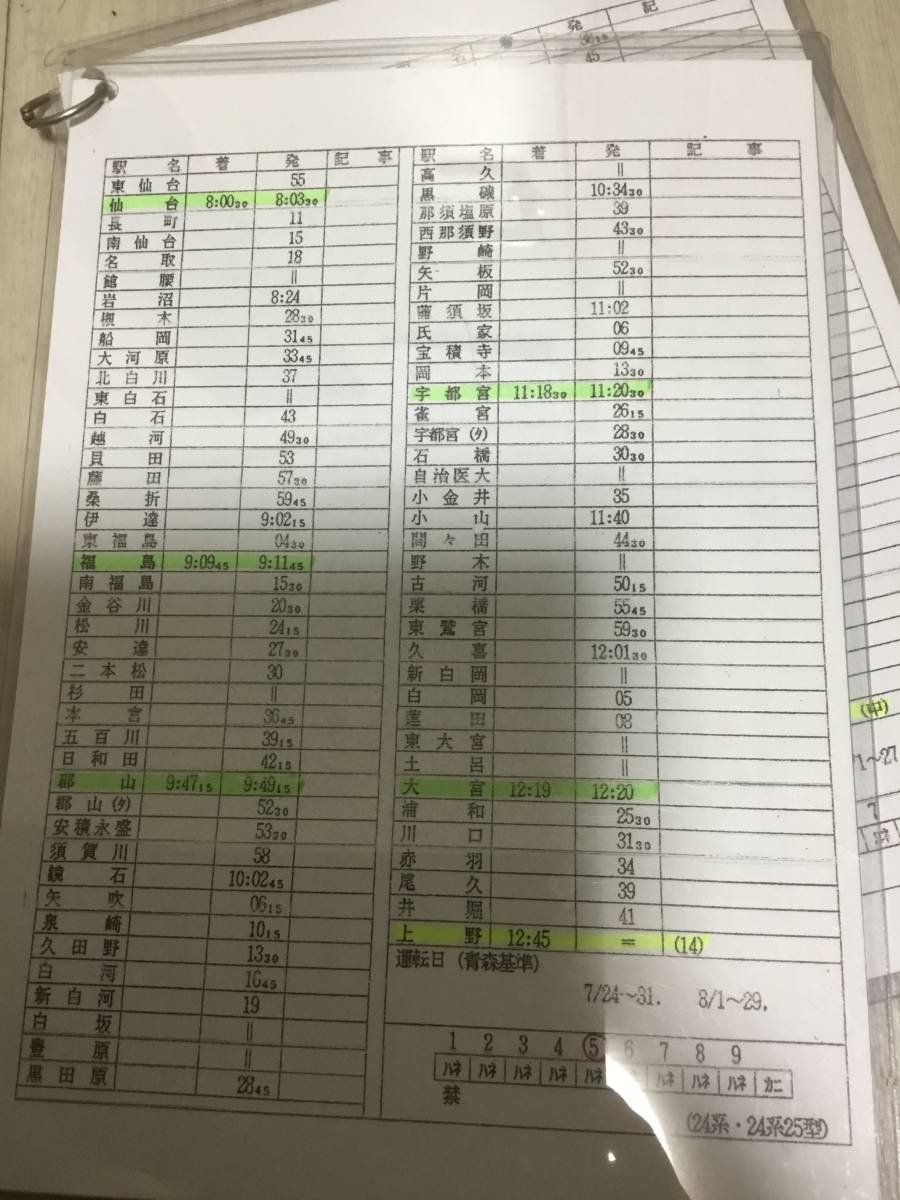 発 記
36₁₅
45
駅名 着 発 記事
東仙台 55
仙台 8:00₃₀ 8:03₃₀
長町 11
南仙台 15
名取 18
館腰 ||
岩沼 8:24
槻木 28₃₀
船岡 31₄₅
大河原 33₄₅
北白川 37
東白石 ||
白石 43
越河 49₃₀
貝田 53
藤田 57₃₀
桑折 59₄₅
伊達 9:02₁₅
東福島 04₃₀
福島 9:09₄₅ 9:11₄₅
南福島 15₃₀
金谷川 20₃₀
松川 24₁₅
安達 27₃₀
二本松 30
杉田 ||
本宮 36₄₅
五百川 39₁₅
日和田 42₁₅
郡山 9:47₁₅ 9:49₁₅
郡山(タ) 52₃₀
安積永盛 53₃₀
須賀川 58
鏡石 10:02₄₅
矢吹 06₁₅
泉崎 10₁₅
久田野 13₃₀
白河 16₄₅
新白河 19
白坂 ||
豊原 ||
黒田原 28₄₅
駅名 着 発 記事
高久 ||
黒磯 10:34₃₀
那須塩原 39
西那須野 43₃₀
野崎 ||
矢板 52₃₀
片岡 ||
蒲須坂 11:02
氏家 06
宝積寺 09₄₅
岡本 13₃₀
宇都宮 11:18₃₀ 11:20₃₀
雀宮 26₁₅
宇都宮(タ) 28₃₀
石橋 30₃₀
自治医大 ||
小金井 35
小山 11:40
間々田 44₃₀
野木 ||
古河 50₁₅
栗橋 55₄₅
東鷲宮 59₃₀
久喜 12:01₃₀
新白岡 ||
白岡 05
蓮田 08
東大宮 ||
土呂 ||
大宮 12:19 12:20
浦和 25₃₀
川口 31₃₀
赤羽 34
尾久 39
井堀 41
上野 12:45 = (14)
運転日(青森基準)
7/24~31. 8/1~29.
1 2 3 4 ⑤ 6 7 8 9
ハネ ハネ ハネ ハネ ハネ ハネ ハネ ハネ カニ
禁
(24系・24系25型)
(中)
/1~27
7
ハネ